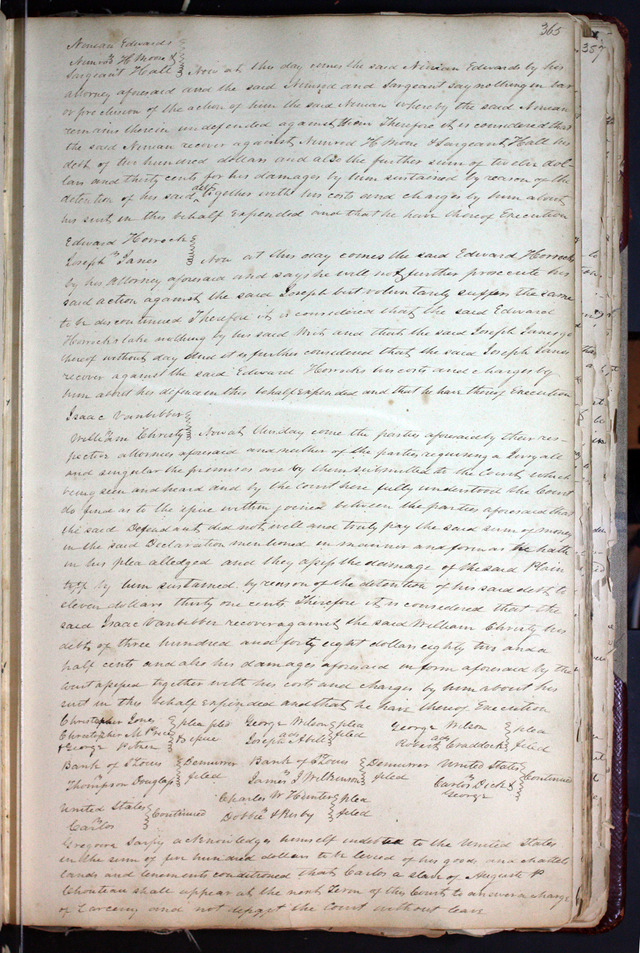 365
357
Ninian Edwards
Nimrod H Moore &
Sargeant Hall Now at this day comes the said Ninian Edwards by his
attorney aforesaid and the said Nimrod and Sargeant say nothing in bar
or preclusion of the action of him the said Ninian whereby the said Ninian
remains therein undefended against them Therefore it is considered that
the said Ninian recover against Nimrod H Moore & Sargeant Hall his
debt of two hundred dollars and also the further sum of twelve dol-
lars and thirty cents for his damages by him sustained by reason of the
detention of his said debt together with his costs and charges by him about
his suit in this behalf Expended and that he have thereof Execution
Edward Horrocks
Joseph Janes Now at this day comes the said Edward Horrocks
by his Attorney aforesaid and says he will not further prosecute his
said action against the said Joseph but voluntarily suffers the same
to be discontinued Therefore it is considered that the said Edward
Horrocks take nothing by his said Writ and that the said Joseph Janes go
thereof without day And it is further considered that the said Joseph Janes
recover against the said Edward Horrocks his costs and charges by
him about his defence in this behalf expended and that he have thereof Execution
Isaac Vanbibber
vs
William Christy Now at this day come the parties aforesaid by their res-
pective attornies aforesaid and neither of the parties requiring a Jury all
and singular the premises are by them submitted to the Court which
being seen and heard and by the Court here fully understood the Court
do find as to the issue within joined between the parties aforesaid that
the said Defendant did not well and truly pay the said sum of money
in the said Declaration mentioned in manner and form as he hath
in his plea alledged and they assess the damage of the said Plain
tiff by him sustained by reason of the detention of his said debt to
eleven dollars thirty one cents Therefore it is considered that the
said Isaac Vanbibber recover against the said William Christy his
debt of three hundred and forty eight dollars eighty two and a
half cents and also his damages aforesaid in form aforesaid by the
Court assessed together with his costs and charges by him about his
suit in this behalf expended and that he have thereof Execution
Christopher Jones plea filed George Wilson plea George Wilson plea
Christopher M & issue ads filed ads filed
& George Joseph Robert Craddock
Bank of St Louis Demurrer Bank of St Louis Demurrer United States
vs filed vs filed vs Continued
Thompson Douglass James J Wilkinson Carlos Dick &
George
United States Charles W Hunter plea
vs Continued vs filed
Carlos Dobbin &
Gregoire Sarpy acknowledges himself indebted to the United States
in the sum of five hundred dollars to be levied of his goods and chattels
lands and tenements conditioned that Carlos a slave of August P
Chouteau shall appear at the next Term of this Court to answer a charge
of Larceny and not depart the Court without leave